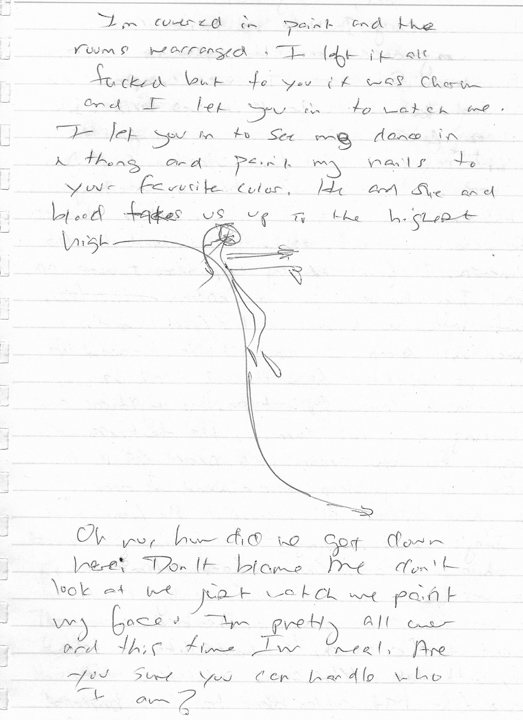 I'm covered in paint and the
rooms rearranged. I left it all
fucked but to you it was charm
and I let you in to watch me.
I let you in to see me dance in
a thong and paint my nails to
your favorite color. He and she and
blood takes us up to the highest
high
Oh no, how did we get down
here? Don't blame me don't
look at me just watch me paint
my face. I'm pretty all over
and this time I'm real. Are
you sure you can handle who
I am?